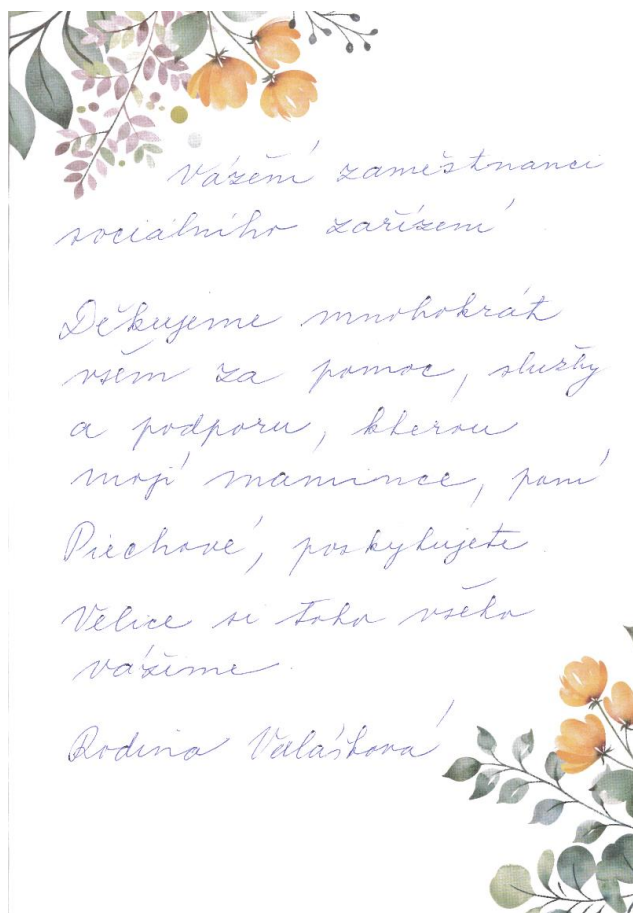 Vážení zaměstnanci
sociálního zařízení
Děkujeme mnohokrát
všem za pomoc, služby
a podporu, kterou
mojí mamince, paní
Piechové, poskytujete.
Velice si toho všeho
vážíme.
Rodina Valášková